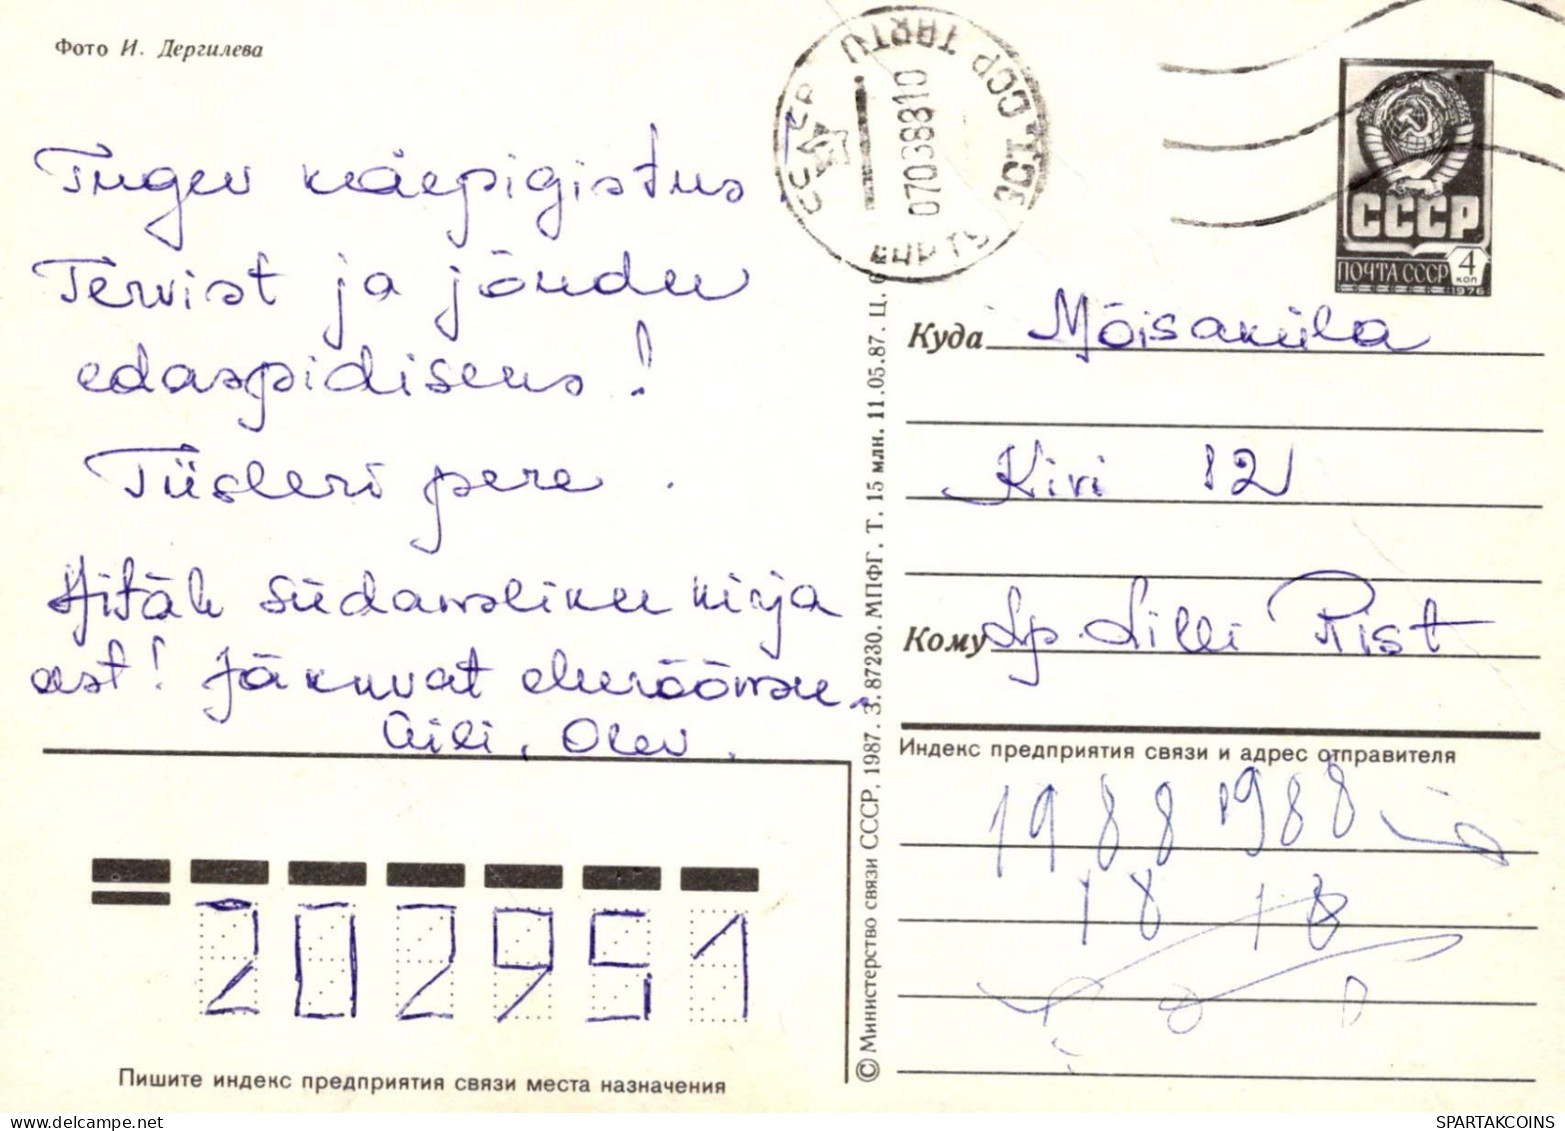 Фото И. Дергилева
Tugev käepigistus
Tervist ja jõudu
edaspidiseks!
Tiisleri pere.
Aitäh südamliku kirja
est! Jäkuvat elurõõmu.
Aili, Olev.
СССР TARTU
ЭСТ. ССР ТАРТУ
07038810
СССР
ПОЧТА СССР 4
КОП
1976
Куда Mõisaküla
Kivi 12
Кому Lp. Lilli Rist
Индекс предприятия связи и адрес отправителя
1988 1988
18 18
202951
Пишите индекс предприятия связи места назначения
© Министерство связи СССР, 1987. З. 87230. МПФГ. Т. 15 млн. 11.05.87. Ц.
SPARTAKCOINS